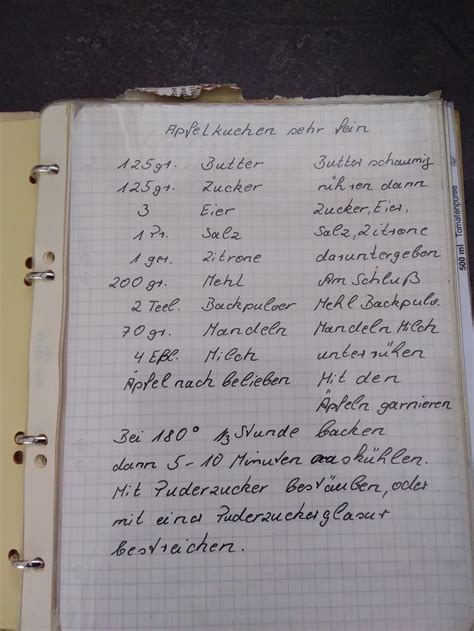 Apfelkuchen sehr fein
125gr. Butter Butter schaumig
125gr. Zucker rühren dann
3 Eier Zucker, Eier,
1 Pr. Salz Salz, Zitrone
1 ger. Zitrone daruntergeben
200gr. Mehl Am Schluß
2 Teel. Backpulver Mehl Backpulv.
70 gr. Mandeln Mandeln Milch
4 Eßl. Milch unterrühen
Äpfel nach belieben Mit den
Äpfeln garnieren
Bei 180° 1/3 Stunde backen
dann 5-10 Minuten auskühlen.
Mit Puderzucker bestäuben, oder
mit einer Puderzuckerglasur
bestreichen.
500 ml Tomatenpüree